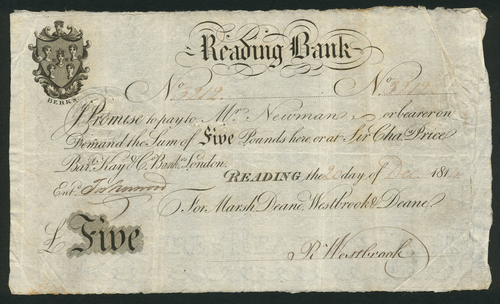 Reading Bank
BERKS
No. 3219 No. 3219
I Promise to pay to Mr. Newman or bearer on
Demand the Sum of Five Pounds here, or at Sir Chas. Price
Bart. Kay & Co. Bank. London.
READING the day of Dec 181
Entd.
For Marsh, Deane, Westbrook & Deane,
£ Five
R. Westbrook